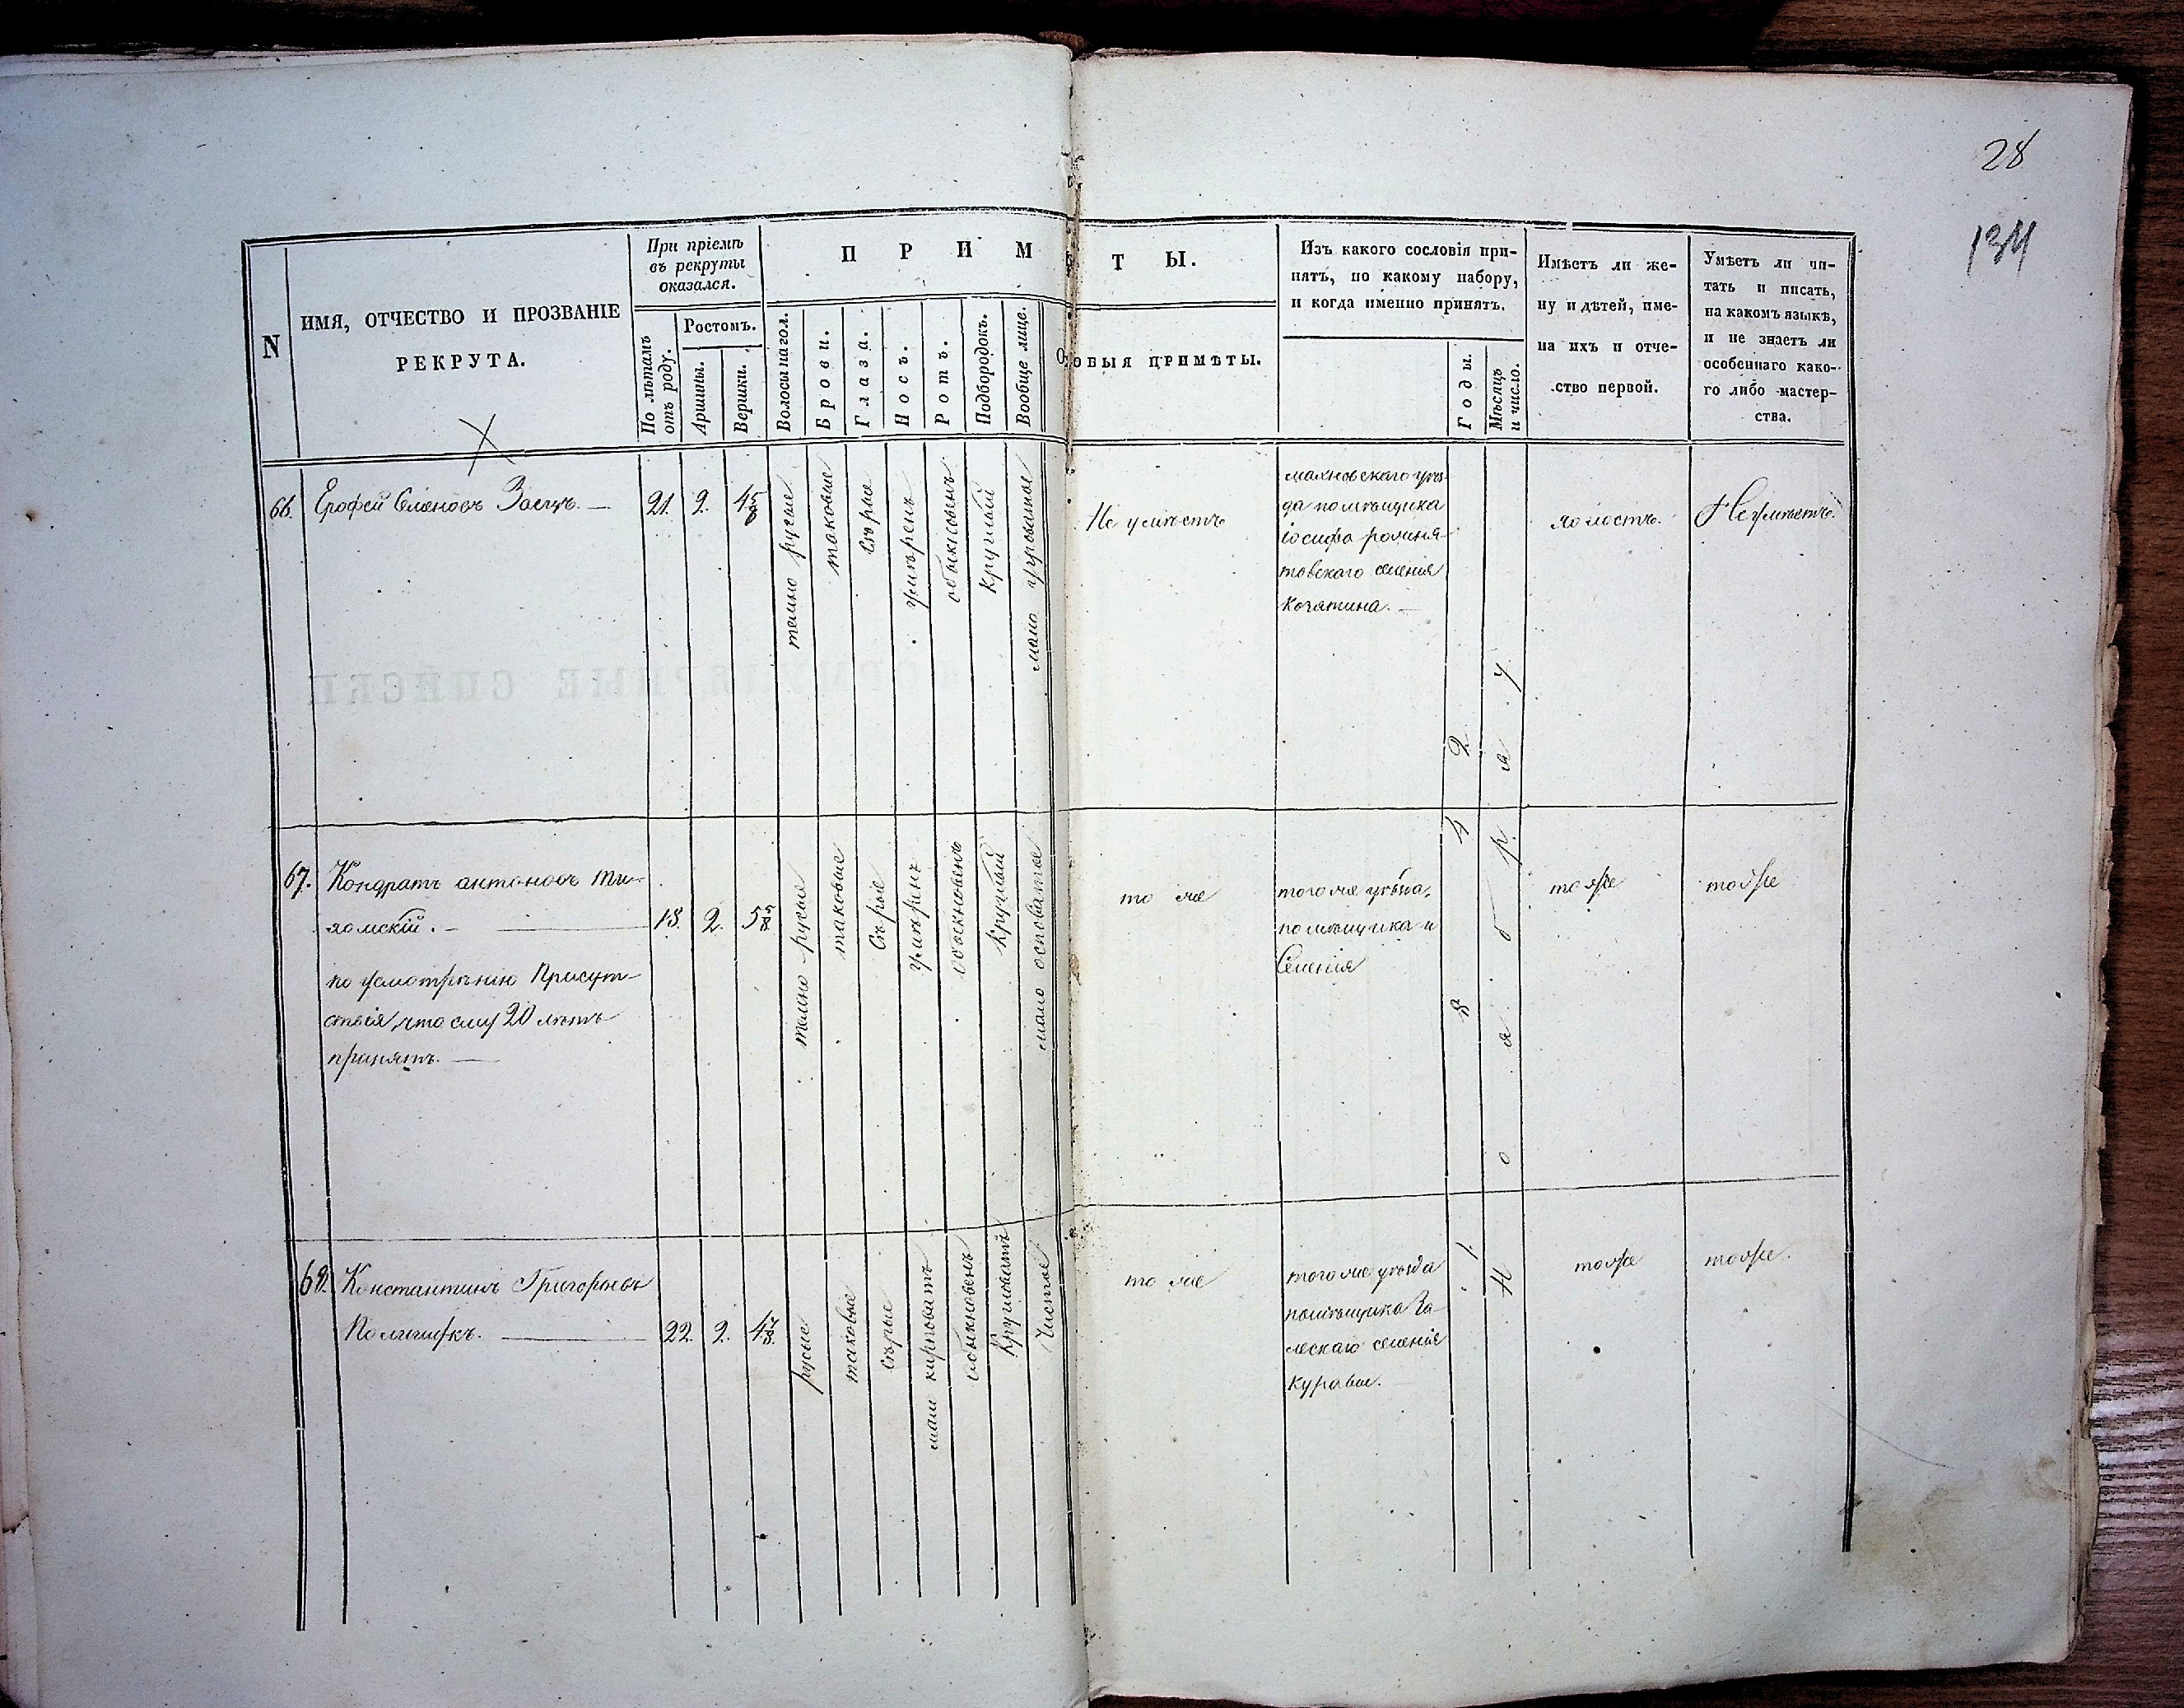 28
134
N
ИМЯ, ОТЧЕСТВО И ПРОЗВАНІЕ
РЕКРУТА.
При пріемѣ
въ рекруты
оказался.
По лѣтамъ
отъ роду.
Ростомъ.
Аршины.
Вершки.
ПРИМѢТЫ.
Волосы на гол.
Брови.
Глаза.
Носъ.
Ротъ.
Подбородокъ.
Вообще лице.
ОСОБЫЯ ПРИМѢТЫ.
Изъ какого сословія при-
нятъ, по какому набору,
и когда именно принятъ.
Годы.
Мѣсяцъ
и число.
Имѣетъ ли же-
ну и дѣтей, име-
на ихъ и отче-
ство первой.
Умѣетъ ли чи-
тать и писать,
на какомъ языкѣ,
и не знаетъ ли
особеннаго како-
го либо мастер-
ства.
66.
Ерофей Семеновъ Заецъ.
21.
2.
4 5/8
темно русые
таковые
сѣрые
умѣренъ
обыкновенъ
круглый
мало
Не умѣетъ
махновскаго уѣз-
да помѣщика
іосифа
селенія
холостъ.
Не умѣетъ.
67.
Кондратъ антоновъ
по усмотрѣнію Присут-
ствія, что ему 20 лѣтъ
принятъ.
18.
2.
5 5/8
темно русые
таковые
Сѣрые
умѣренъ
обыкновенъ
круглый
мало осповатое
то же
того же уѣзда,
помѣщика и
Селенія
тоже
тоже
68.
Константинъ Григорьевъ
22.
2.
4 7/8
русые
таковые
Сѣрые
мало курноватъ
обыкновенъ
Кругловатый
Чистое
то же
того же уѣзда
помѣщика За-
лескаго селенія
тоже
тоже.
1 8 4 2
Ноября 4